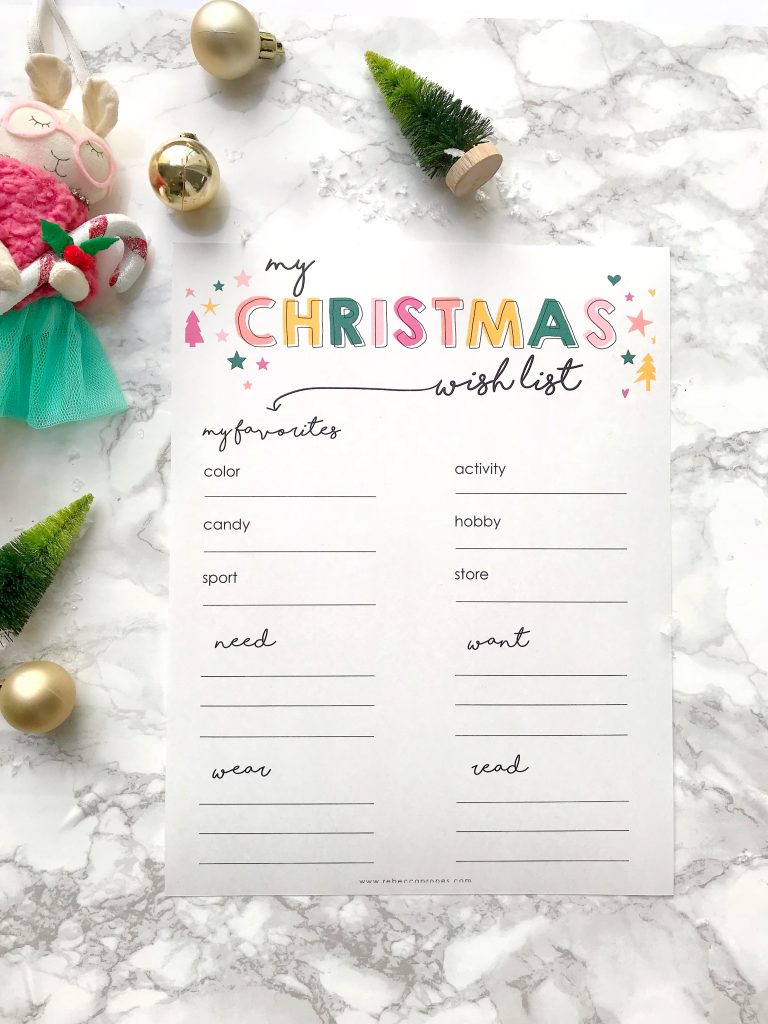 my
CHRISTMAS
wish list
my favorites
color
activity
candy
hobby
sport
store
need
want
wear
read